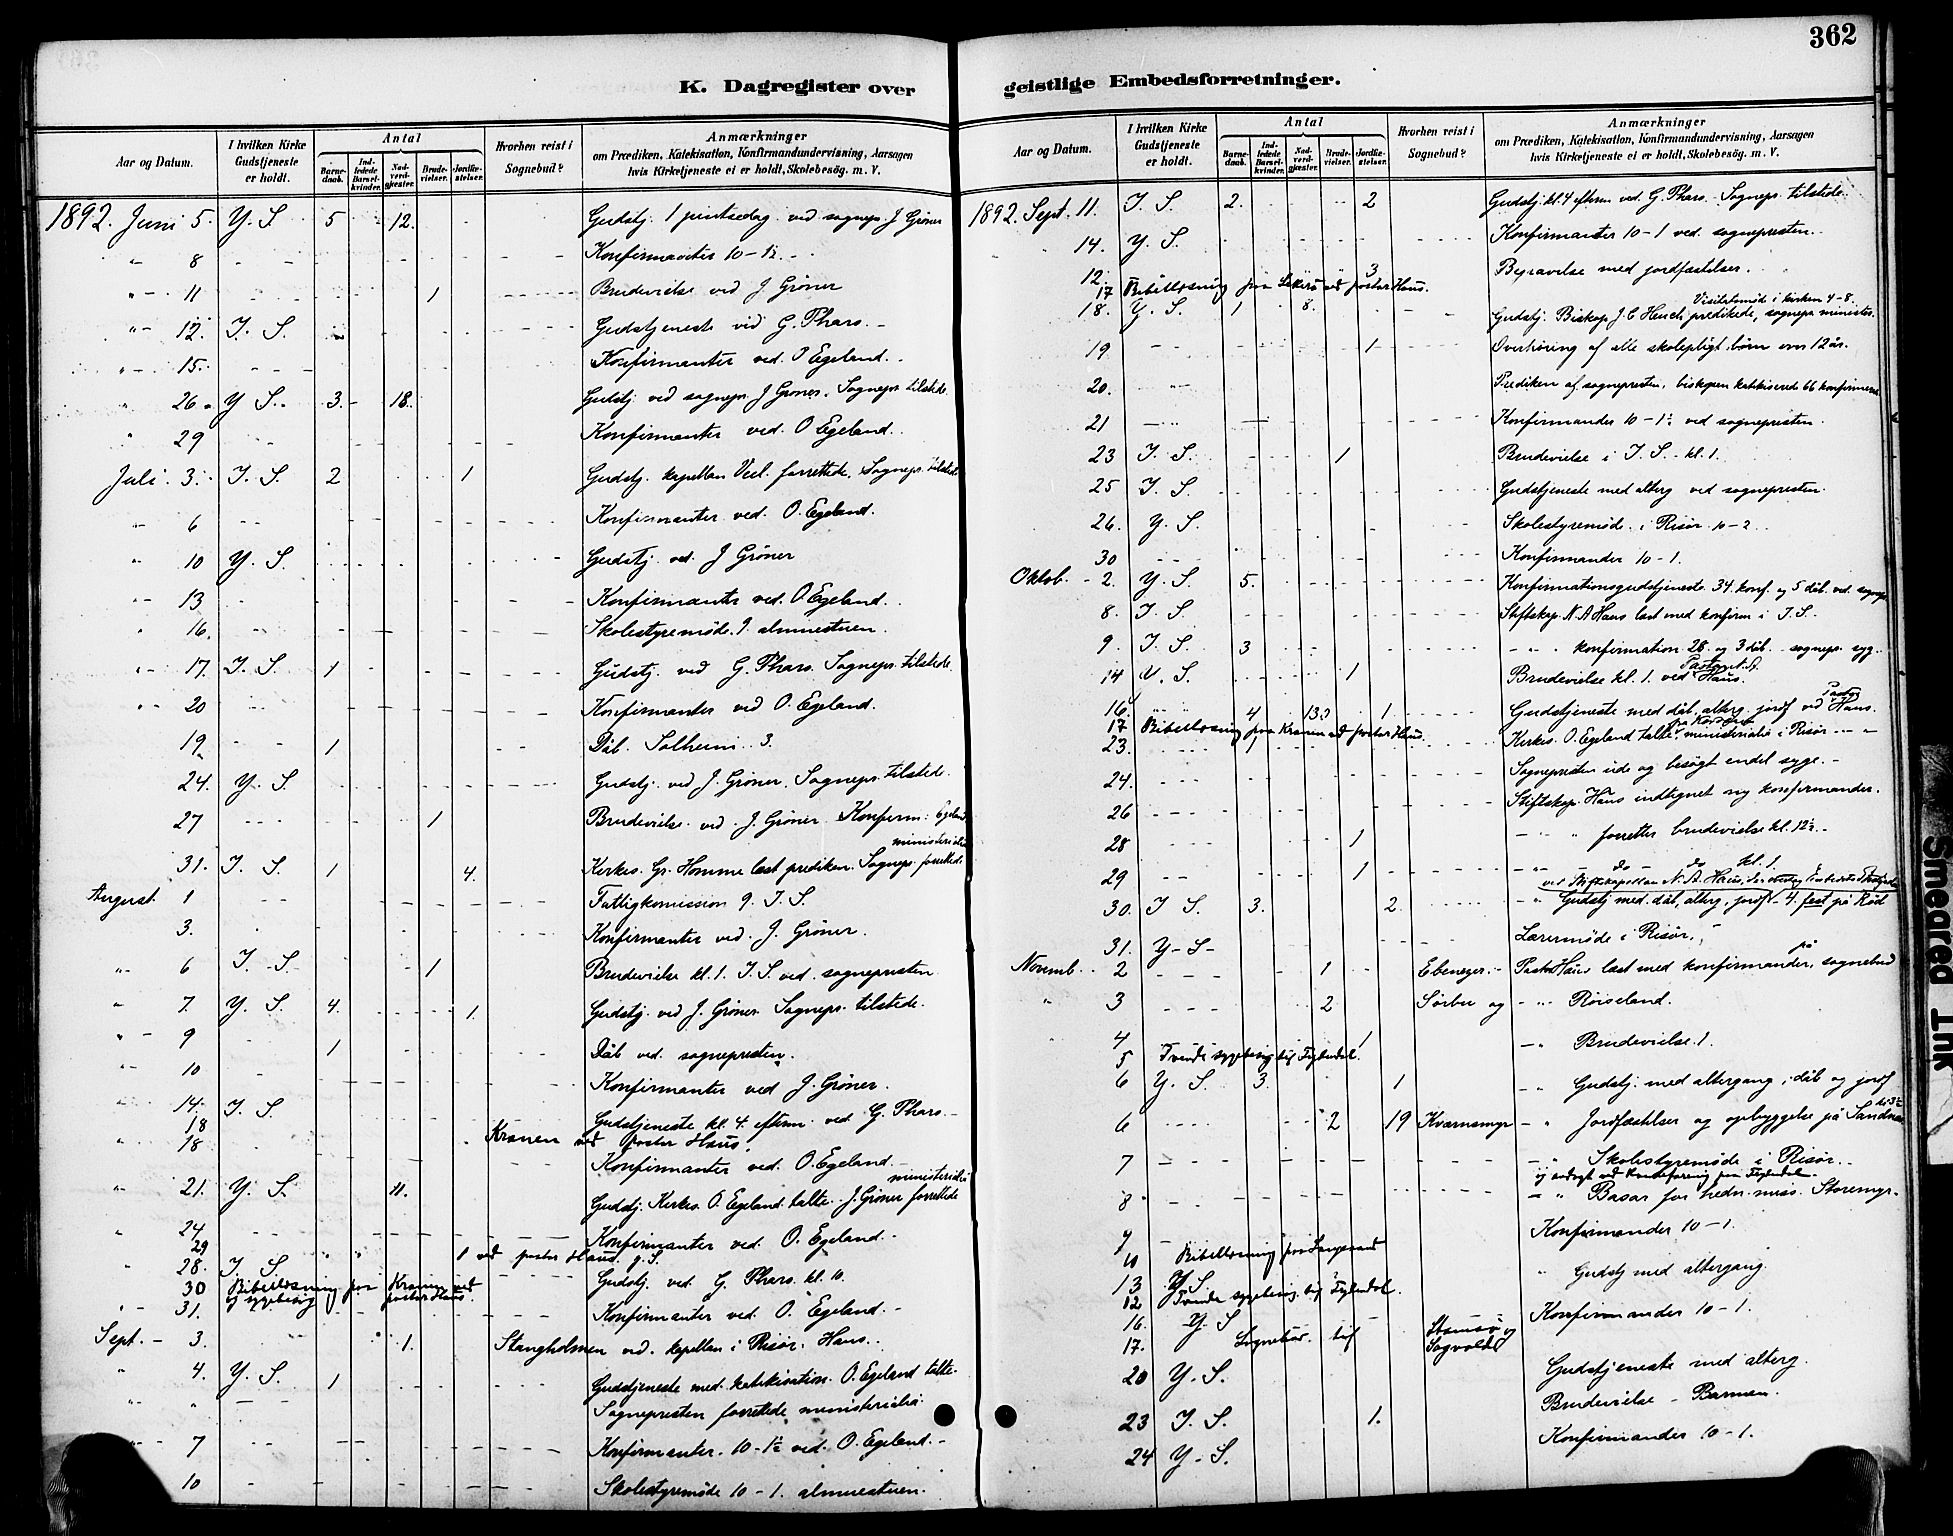 362
K. Dagregister over geistlige Embedsforretninger.
Aar og Datum. I hvilken Kirke Gudstjeneste er holdt. Antal Barnedaab. Indledede Barselkvinder. Nadverdgjester. Brudevielser. Jordfæstelser. Hvorhen reist i Sognebud? Anmærkninger om Prædiken, Katekisation, Konfirmandundervisning, Aarsagen hvis Kirketjeneste ei er holdt, Skolebesøg. m. V.
1892. Juni 5. Y. S 5 12. Gudstj. 1 pintsedag ved sognepr. J Grøner
" 8 Konfirmanter 10-1½
" 11 1 Brudevielse ved J Grøner
" 12. I. S. Gudstjeneste ved G. Thars.
" 15. Konfirmanter ved O Egeland.
" 26 Y S. 3. 18. Gudstj. ved sognepr J Grøner. Sognepr. tilstede
" 29 Konfirmanter ved. O Egeland.
Juli 3. I. S. 2 1 Gudstj. kapellan Veel. forrettede. Sognepr. tilstede
" 6 Konfirmanter ved. O. Egeland.
" 10 Y. S. Gudstj. ved J Grøner
" 13 Konfirmanter ved. O Egeland.
" 16. Skolestyremøde. 9. almuestuen.
" 17. I. S. 1 Gudstj. ved G. Thars. Sognepr. tilstede.
" 20 Konfirmanter ved O. Egeland.
19 1 Dåb. Solheim. 3.
24. Y. S. Gudstj. ved J. Grøner. Sognepr. tilstede.
27 1 Brudevielse ved J. Grøner. Konfirm: Egeland
ministerialia
31. I. S. 1 4. Kirkes. Gr. Homme læst prediken. Sognepr. forrettede
August. 1 Fattigkomission 9. I. S.
3. Konfirmanter ved. J. Grøner.
" 6 I. S. 1 Brudevielse kl. 1. I. S. ved. sognepresten
" 7. Y. S. 4. 1. Gudstj. ved J. Grøner Sognepr. tilstede.
" 9 1 Dåb ved. sognepresten.
" 10 Konfirmanter ved J. Grøner.
" 14. I. S. Gudstjeneste kl. 4. efterm. ved G. Thars.
18 Kranen ved pastor Haus.
" 18 Konfirmanter ved. O. Egeland
ministerialia
" 21. Y. S. 11. Gudstj. Kirkes. O. Egeland talte. J. Grøner forrettede
" 24 Konfirmanter ved. O. Egeland.
29 1 ved pastor Haus. Y. S.
" 28. I S. Gudstj. ved G. Thars. kl. 10.
30 Bibellæsning paa Kranen ved
og sygebesøg pastor Haus.
" 31. Konfirmanter ved O. Egeland.
Sept. 3. 1. Stangholmen ved. kapellan i Risør. Haus.
" 4. Y. S. 1 Gudstjeneste med katekisation. O. Egeland talte.
" " Sognepresten forrettede ministerialia.
" 7 Konfirmanter. 10-1½ ved. O. Egeland.
10 Skolestyremøde 10-1. almuestuen.
Aar og Datum. I hvilken Kirke Gudstjeneste er holdt. Antal Barnedaab. Indledede Barselkvinder. Nadverdgjester. Brudevielser. Jordfæstelser. Hvorhen reist i Sognebud? Anmærkninger om Prædiken, Katekisation, Konfirmandundervisning, Aarsagen hvis Kirketjeneste ei er holdt, Skolebesøg. m. V.
1892. Sept. 11. I. S. 2. 2 Gudstj. kl. 4 efterm ved G. Thars. Sognepr. tilstede.
" 14. Y. S. Konfirmanter 10-1 ved sognepresten.
12. 3 Begravelse med jordfæstelser.
17 Bibellæsning paa ved pastor Haus.
Visitatsmøde i kirken 4-8.
18. Y. S. 1 8. Gudstj. Biskop J. C Heuch predikede, sognepr. minister.
19 1 Overhøring af alle skolepligt. børn over 12 år.
20. Prediken af sognepresten, biskopen katekiserede 66 konfirmerede
21 Konfirmander 10-1½ ved sognepresten.
23 I. S. 1 Brudevielse i I. S. kl. 1.
25 I. S. Gudstjeneste med alterg ved sognepresten.
26. Y. S. Skolestyremøde i Risør. 10-2.
30 Konfirmander 10-1.
Oktob. 2. Y. S. 5. Konfirmationsgudstjeneste. 34 konf. og 5 dåb. ved. sognepr
8. I. S. Stiftskap. N. A Haus læst med konfirm i I. S.
9. I. S. 3 " konfirmation 28 og 3 dåb. sognepr. syg.
14 Y. S. 1 Brudevielse kl. 1. ved Haus.
16. 4 13. 1 Gudstjeneste med dåb, alterg. jordf ved Pastor Haus.
17 Bibellæsning paa Kranen ved pastor Haus
23. Kirkes. O. Egeland talte, ministerialia i Risør
24. Sognepresten ude og besøgt endel syge.
26 Stiftskap. Haus indtegnet ny konfirmander.
28 1 " forretter brudevielse kl. 12½.
29 1 " do do kl. 1.
ved Stiftskapellan N. A. Haus,
30. I S. 3. 2. " Gudstj med dåb, alterg, jordf 4. fest på Rød
31. Y. S. Lærermøde i Risør.
Novemb. 2 1 Ebenezer. Pastor Haus læst med konfirmander, på sognebud
" 3 2 Sørbu og " Røiseland.
4 1 " Brudevielse. 1.
5 Tvende sygebesøg
6 Y. S. 3. 1 " Gudstj. med altergang, dåb og jordf
6 2 19 Kværnsmyr " Jordfæstelser og opbyggelse på Sandnes
7 " Skolestyremøde i Risør.
8 " Basar for hedn. miss. Storemyr.
9 Konfirmander 10-1.
10 Bibellæsning
13 Y S " Gudstj med altergang.
12 Tvende sygebesøg
16. Y. S Konfirmander 10-1.
17. Sognebud.
20 Y. S. Gudstjeneste med alterg.
Brudevielse - Barmen.
23 I. S. 1.
24 Y. S. Konfirmander 10-1.
Smeared Ink